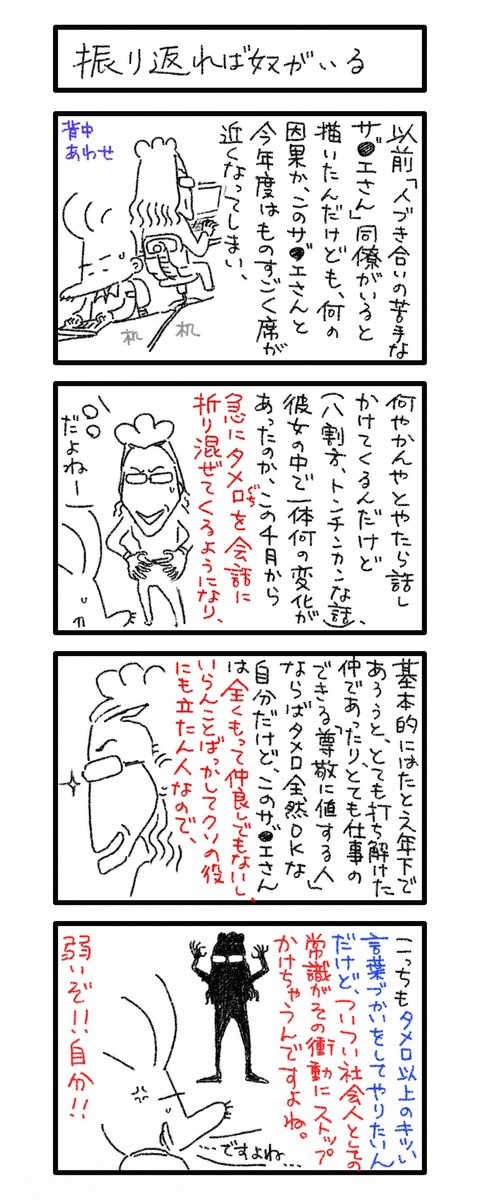 振り返れば奴がいる
以前「人づき合いの苦手な
ザ●エさん」同僚がいると
描いたんだけども、何の
因果か、このサ●エさんと
今年度はものすごく席が
近くなってしまい、
背中
あわせ
机
机
何やかんやとやたら話し
かけてくるんだけど
(八割方、トンチンカンな話)、
彼女の中で一体何の変化が
あったのか、この4月から
急にタメロを会話に
ぐち
折り混ぜてくるようになり、
だよねー
基本的にはたとえ年下で
あろうと、とても打ち解けた
仲であったりとても仕事の
できる「尊敬に値する人」
ならばタメロ全然OKな
自分だけど、このサ●エさん
は全くもって仲良しでもないし、
いらんことばっかしてクソの役
にも立たん人なので、
こっちもタメロ以上のキツい
言葉づかいをしてやりたいん
だけど、ついつい社会人としての
常識がその衝動にストップ
かけちゃうんですよね。
…ですよね…
弱いぞ!!自分!!